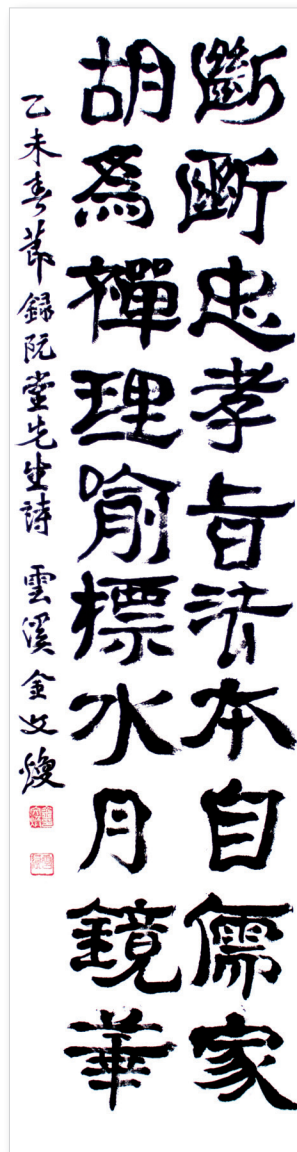 斷斷忠孝旨法本自儒家
胡爲禪理喻標水月鏡華
乙未春節錄阮堂先生詩 雲溪金文煥